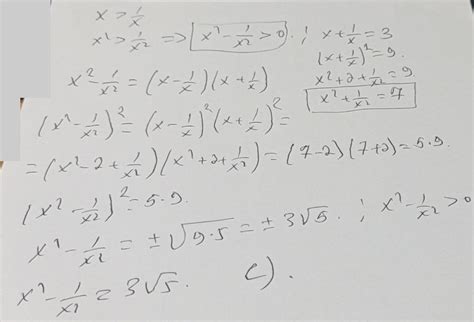 x > 1/x
x² > 1/x² => x² - 1/x² > 0. ; x + 1/x = 3
(x + 1/x)² = 9.
x² - 1/x² = (x - 1/x)(x + 1/x)
x² + 2 + 1/x² = 9
x² + 1/x² = 7
(x² - 1/x²)² = (x - 1/x)² (x + 1/x)² =
= (x² - 2 + 1/x²)(x² + 2 + 1/x²) = (7-2)(7+2) = 5·9.
(x² - 1/x²)² = 5·9.
x² - 1/x² = ±√9·5 = ±3√5. ; x² - 1/x² > 0
x² - 1/x² = 3√5. C).